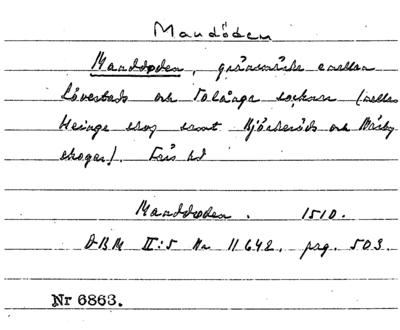 Mandöden
Manddøden, gränsmärke mellan
Lövestads och Tolånga socknar (mellan
Heinge skog samt Björkeröds och
skogar). Färs hd
Manddøden. 1510.
DBM II:5 Nr 11642. pag. 503.
Nr 6863.